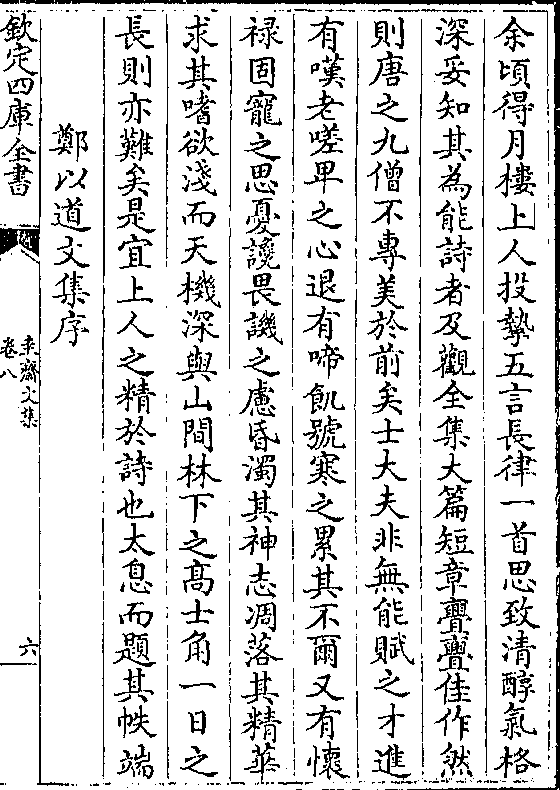 余頃得月樓上人投贄五言長律一首思致清醇氣格
深妥知其為能詩者及觀全集大篇短章亹亹佳作然
則唐之九僧不專美於前矣士大夫非無能賦之才進
有嘆老嗟卑之心退有啼飢號寒之累其不爾又有懷
祿固寵之思憂讒畏譏之慮昏濁其神志凋落其精華
求其嗜欲淺而天機深與山間林下之髙士角一日之
長則亦難矣是宜上人之精於詩也太息而題其帙端
鄭以道文集序
欽定四庫全書
耒齋文集
卷八
六